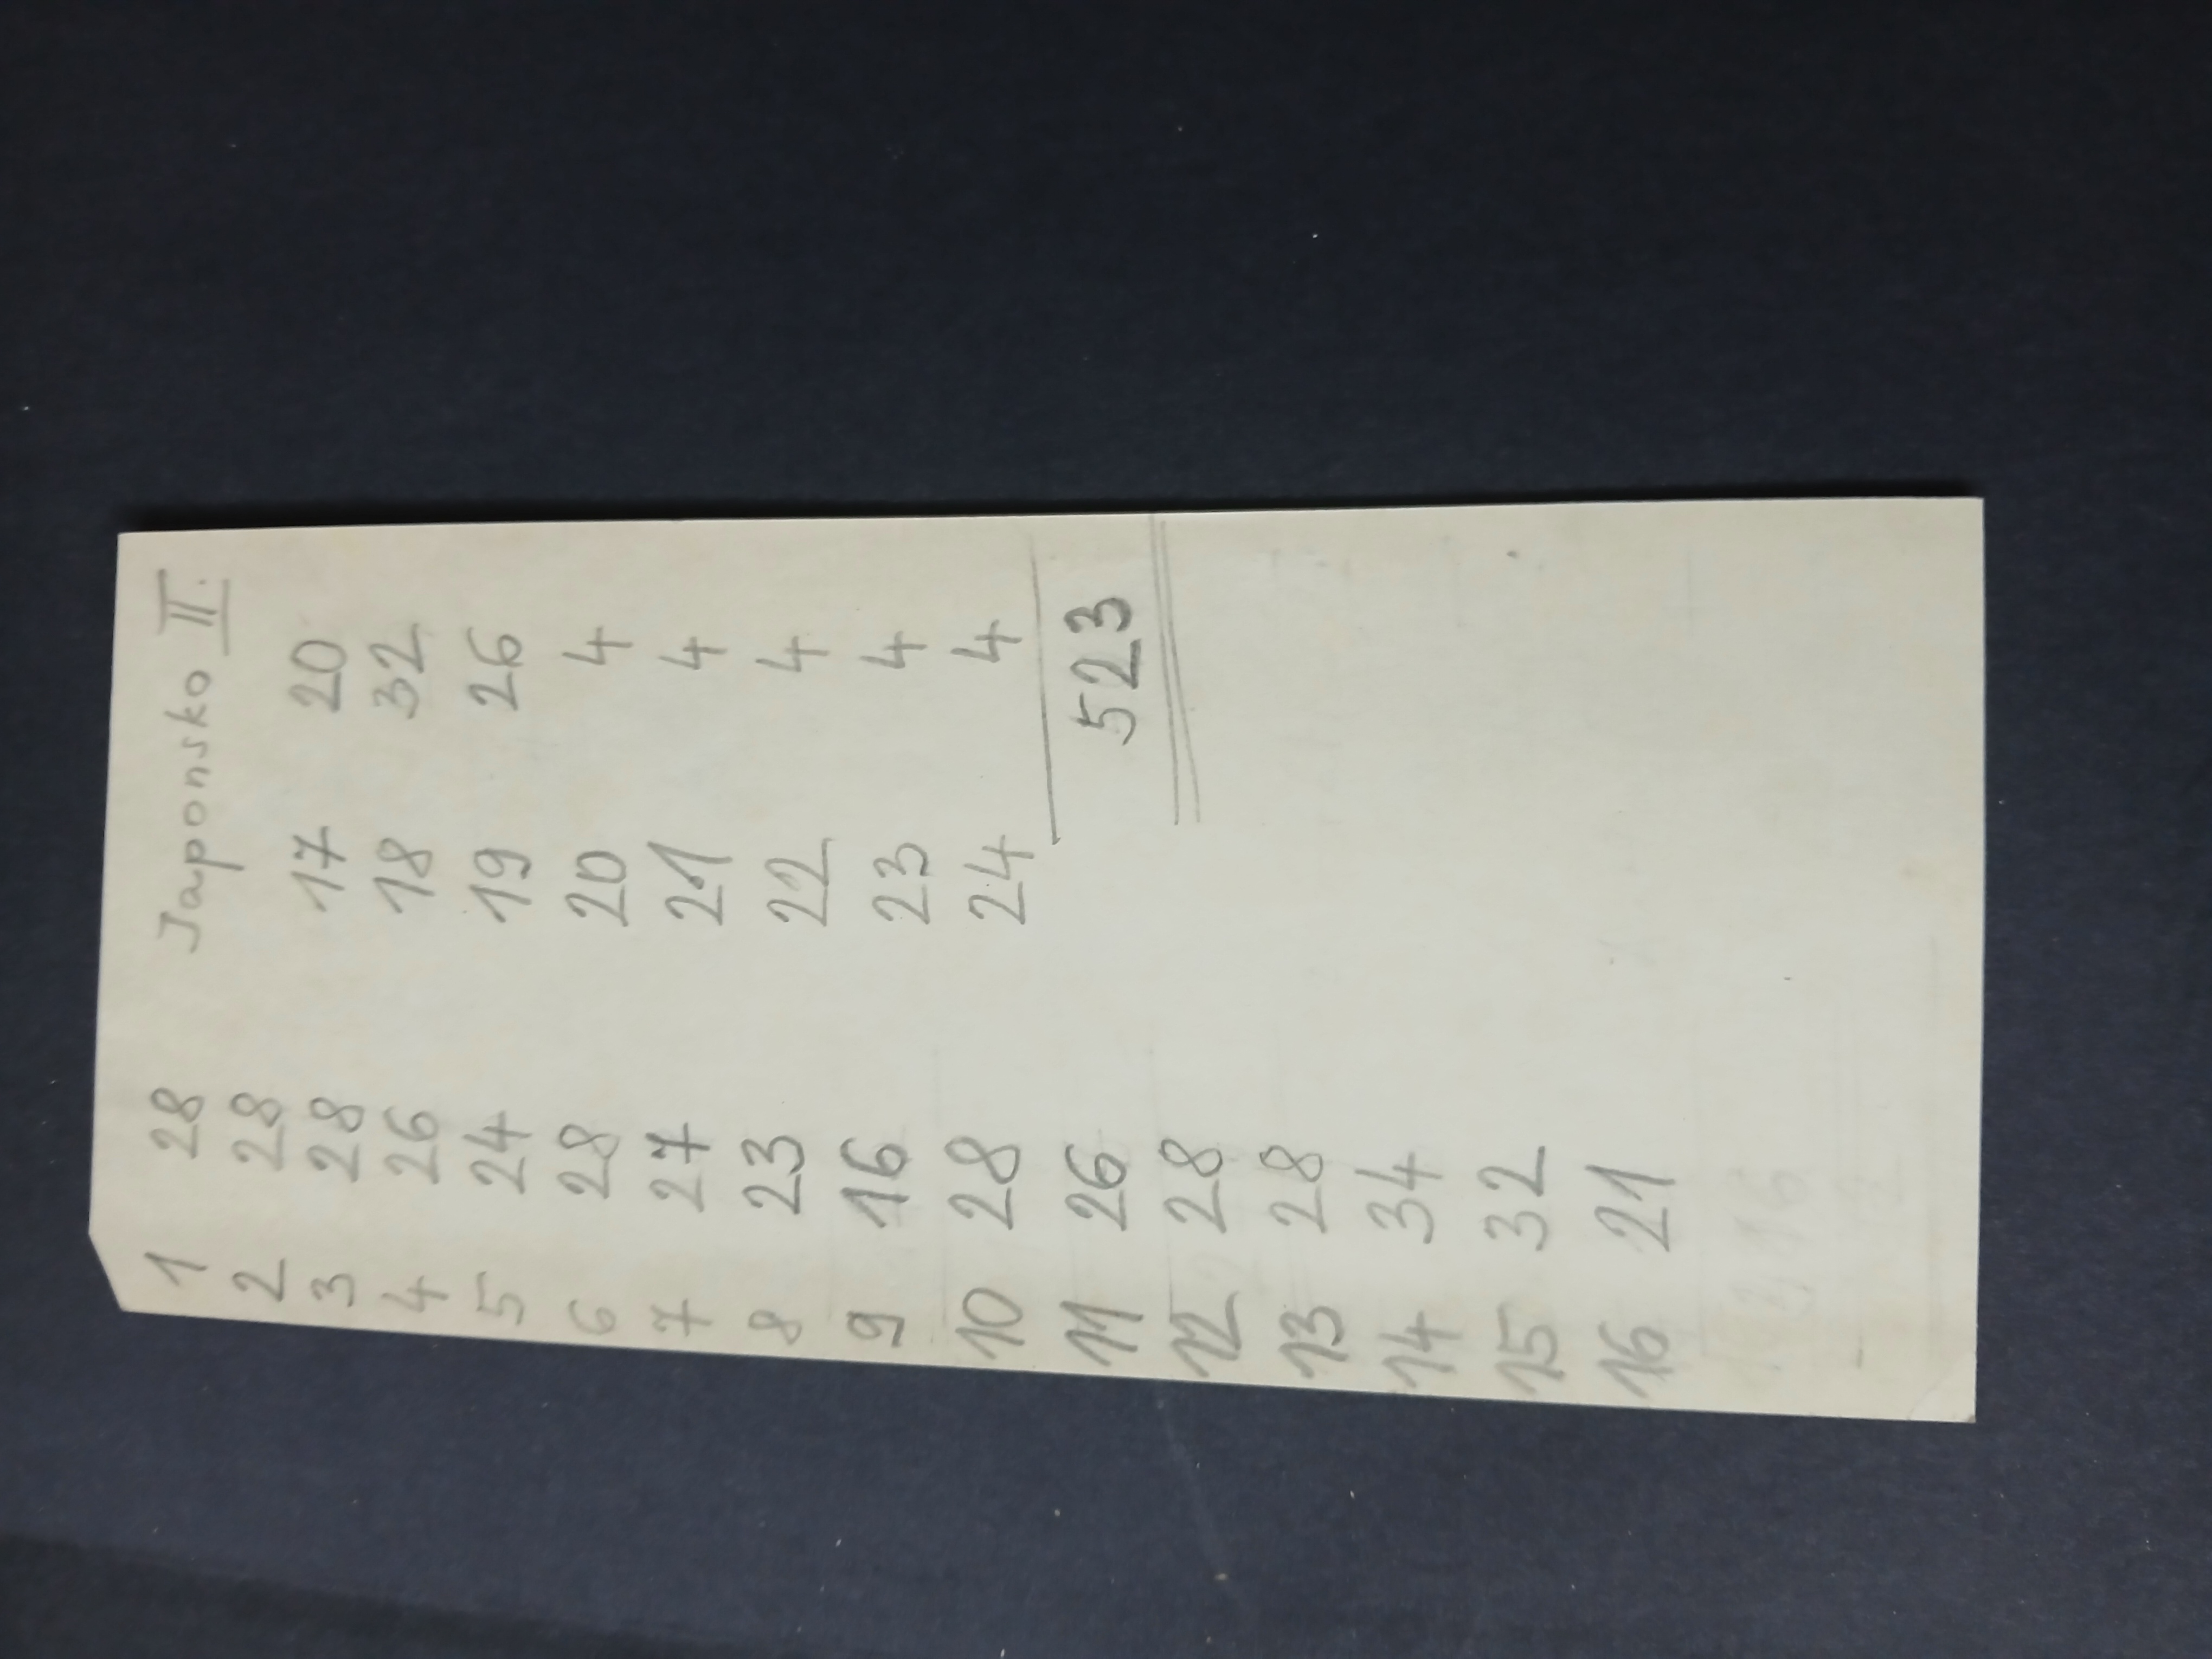 Japonsko II.
1 28
2 28
3 28
4 26
5 24
6 28
7 27
8 23
9 16
10 28
11 26
12 28
13 28
14 34
15 32
16 21
17 20
18 32
19 26
20 4
21 4
22 4
23 4
24 4
523